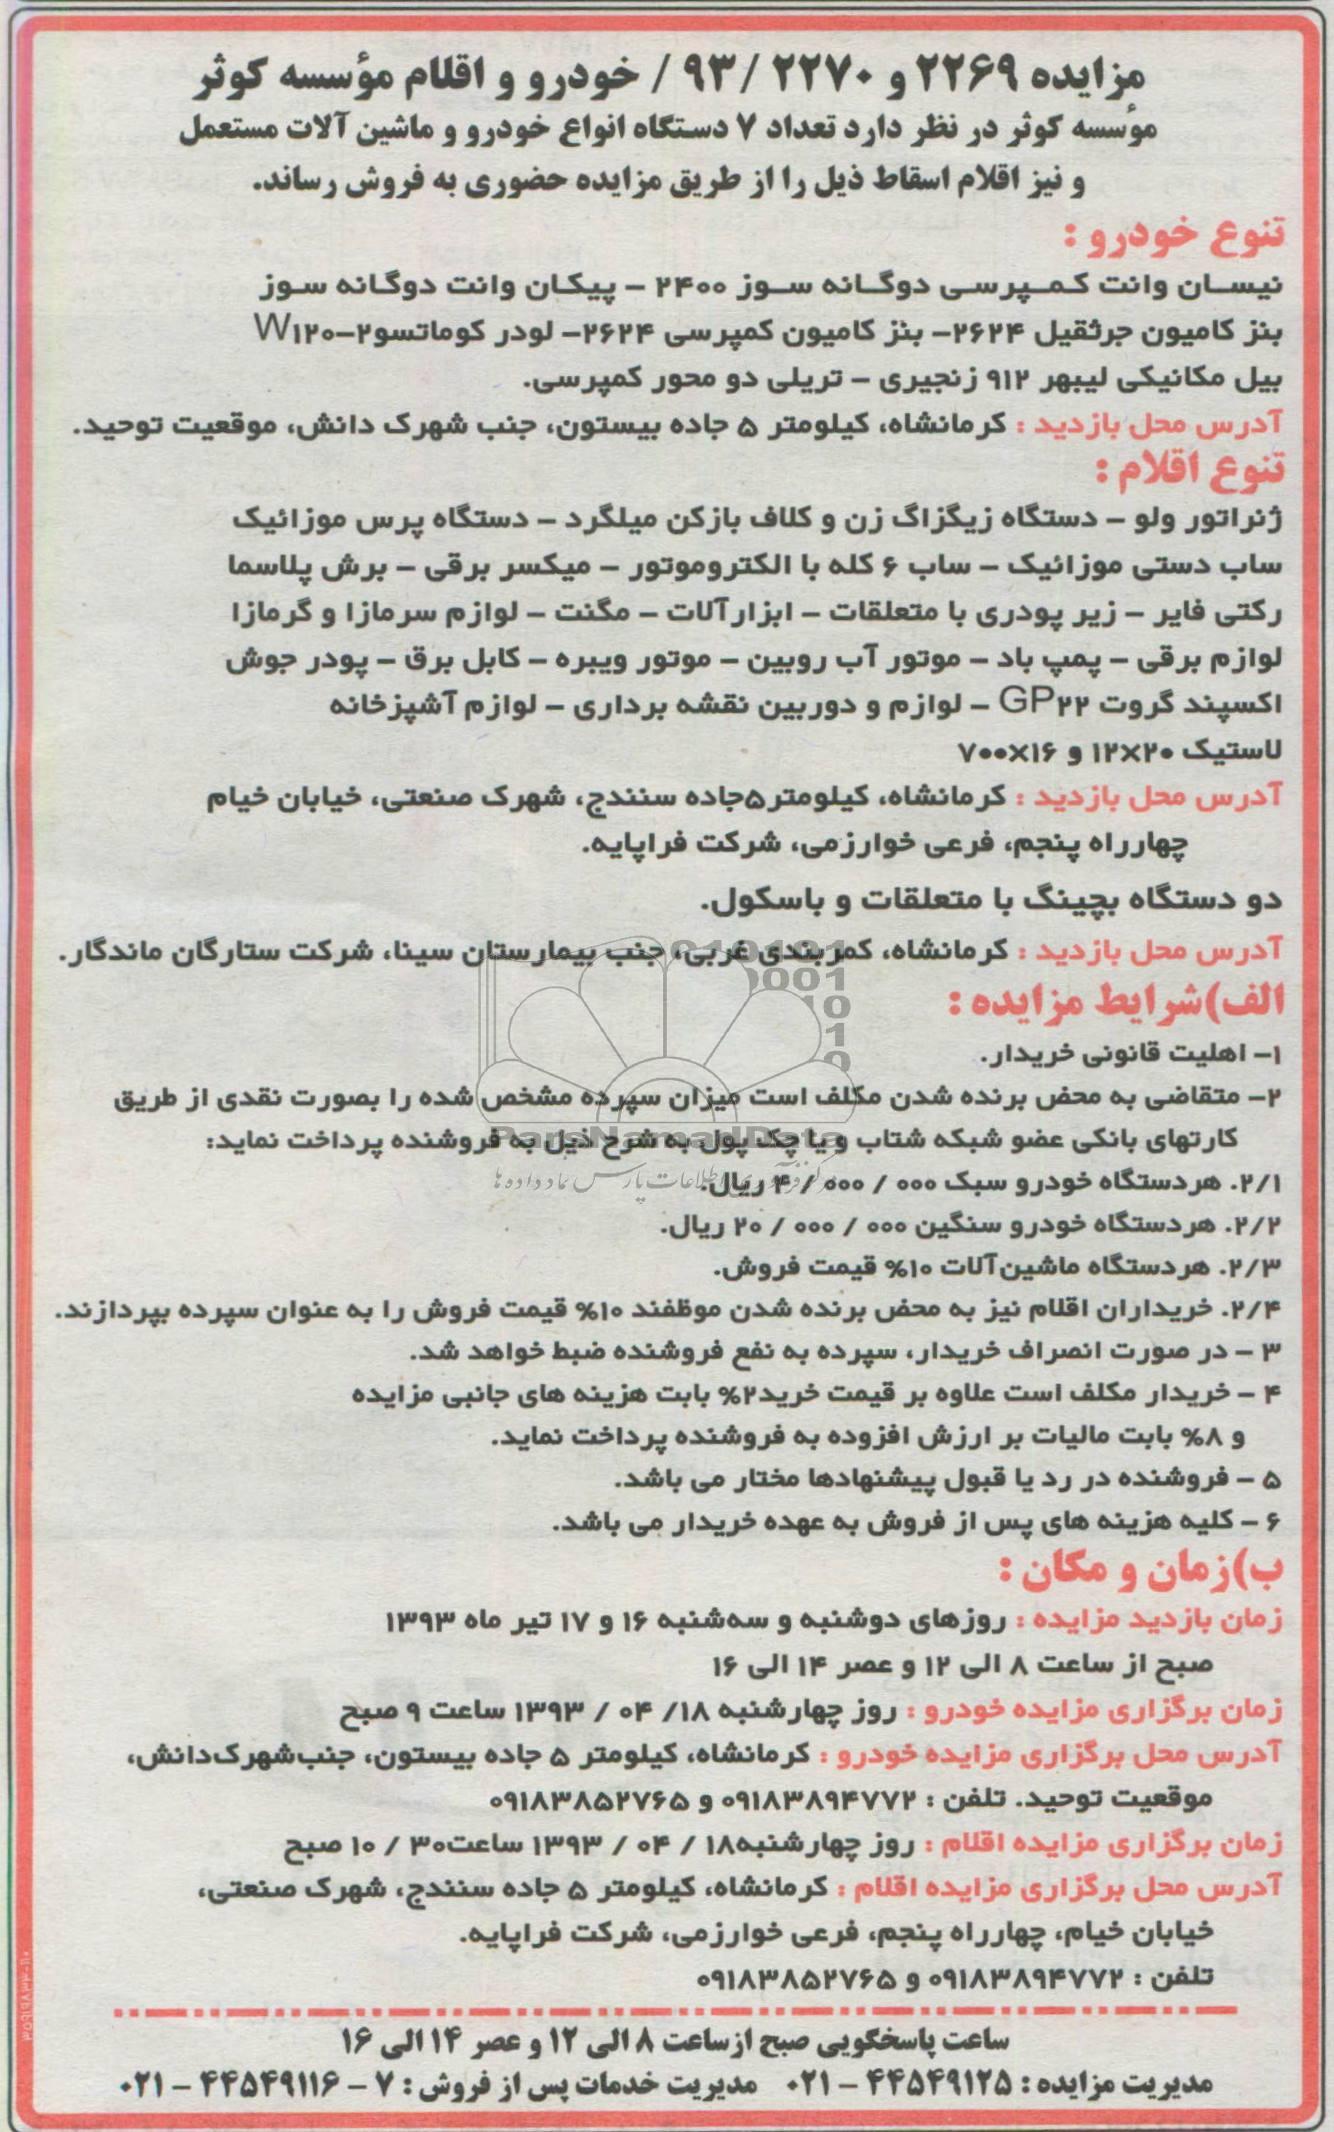 مزایده ۲۲۶۹ و ۲۲۷۰ /۹۳ / خودرو و اقلام مؤسسه کوثر
مؤسسه کوثر در نظر دارد تعداد ۷ دستگاه انواع خودرو و ماشین آلات مستعمل
و نیز اقلام اسقاط ذیل را از طریق مزایده حضوری به فروش رساند.
تنوع خودرو :
نیسان وانت کمپرسی دوگانه سوز ۲۴۰۰ – پیکان وانت دوگانه سوز
بنز کامیون جرثقیل ۲۶۲۴– بنز کامیون کمپرسی ۲۶۲۴– لودر کوماتسو۲–W۱۲۰
بیل مکانیکی لیبهر ۹۱۲ زنجیری – تریلی دو محور کمپرسی.
آدرس محل بازدید : کرمانشاه، کیلومتر ۵ جاده بیستون، جنب شهرک دانش، موقعیت توحید.
تنوع اقلام :
ژنراتور ولو – دستگاه زیگزاگ زن و کلاف بازکن میلگرد – دستگاه پرس موزائیک
ساب دستی موزائیک – ساب ۶ کله با الکتروموتور – میکسر برقی – برش پلاسما
رکتی فایر – زیر پودری با متعلقات – ابزارآلات – مگنت – لوازم سرمازا و گرمازا
لوازم برقی – پمپ باد – موتور آب روبین – موتور ویبره – کابل برق – پودر جوش
اکسپند گروت GP۲۲ – لوازم و دوربین نقشه برداری – لوازم آشپزخانه
لاستیک ۱۲X۲۰ و ۷۰۰X۱۶
آدرس محل بازدید : کرمانشاه، کیلومتر۵جاده سنندج، شهرک صنعتی، خیابان خیام
چهارراه پنجم، فرعی خوارزمی، شرکت فراپایه.
دو دستگاه بچینگ با متعلقات و باسکول.
آدرس محل بازدید : کرمانشاه، کمربندی غربی، جنب بیمارستان سینا، شرکت ستارگان ماندگار.
الف)شرایط مزایده :
۱– اهلیت قانونی خریدار.
۲– متقاضی به محض برنده شدن مکلف است میزان سپرده مشخص شده را بصورت نقدی از طریق
کارتهای بانکی عضو شبکه شتاب و یا چک پول به شرح ذیل به فروشنده پرداخت نماید:
ParsNamadData
مرکز فرآوری اطلاعات پارس نماد داده ها
۲/۱. هردستگاه خودرو سبک ۰۰۰ / ۰۰۰ / ۴ ریال.
۲/۲. هردستگاه خودرو سنگین ۰۰۰ / ۰۰۰ / ۲۰ ریال.
۲/۳. هردستگاه ماشین‌آلات ۱۰% قیمت فروش.
۲/۴. خریداران اقلام نیز به محض برنده شدن موظفند ۱۰% قیمت فروش را به عنوان سپرده بپردازند.
۳ – در صورت انصراف خریدار، سپرده به نفع فروشنده ضبط خواهد شد.
۴ – خریدار مکلف است علاوه بر قیمت خرید۲% بابت هزینه های جانبی مزایده
و ۸% بابت مالیات بر ارزش افزوده به فروشنده پرداخت نماید.
۵ – فروشنده در رد یا قبول پیشنهادها مختار می باشد.
۶ – کلیه هزینه های پس از فروش به عهده خریدار می باشد.
ب)زمان و مکان :
زمان بازدید مزایده : روزهای دوشنبه و سه‌شنبه ۱۶ و ۱۷ تیر ماه ۱۳۹۳
صبح از ساعت ۸ الی ۱۲ و عصر ۱۴ الی ۱۶
زمان برگزاری مزایده خودرو : روز چهارشنبه ۱۸/ ۰۴ / ۱۳۹۳ ساعت ۹ صبح
آدرس محل برگزاری مزایده خودرو : کرمانشاه، کیلومتر ۵ جاده بیستون، جنب‌شهرک‌دانش،
موقعیت توحید. تلفن : ۰۹۱۸۳۸۹۴۷۷۲ و ۰۹۱۸۳۸۵۲۷۶۵
زمان برگزاری مزایده اقلام : روز چهارشنبه۱۸ / ۰۴ / ۱۳۹۳ ساعت۳۰ / ۱۰ صبح
آدرس محل برگزاری مزایده اقلام : کرمانشاه، کیلومتر ۵ جاده سنندج، شهرک صنعتی،
خیابان خیام، چهارراه پنجم، فرعی خوارزمی، شرکت فراپایه.
تلفن : ۰۹۱۸۳۸۹۴۷۷۲ و ۰۹۱۸۳۸۵۲۷۶۵
ساعت پاسخگویی صبح ازساعت ۸ الی ۱۲ و عصر ۱۴ الی ۱۶
مدیریت مزایده : ۴۴۵۴۹۱۲۵ – ۰۲۱ مدیریت خدمات پس از فروش : ۷ – ۴۴۵۴۹۱۱۶ – ۰۲۱